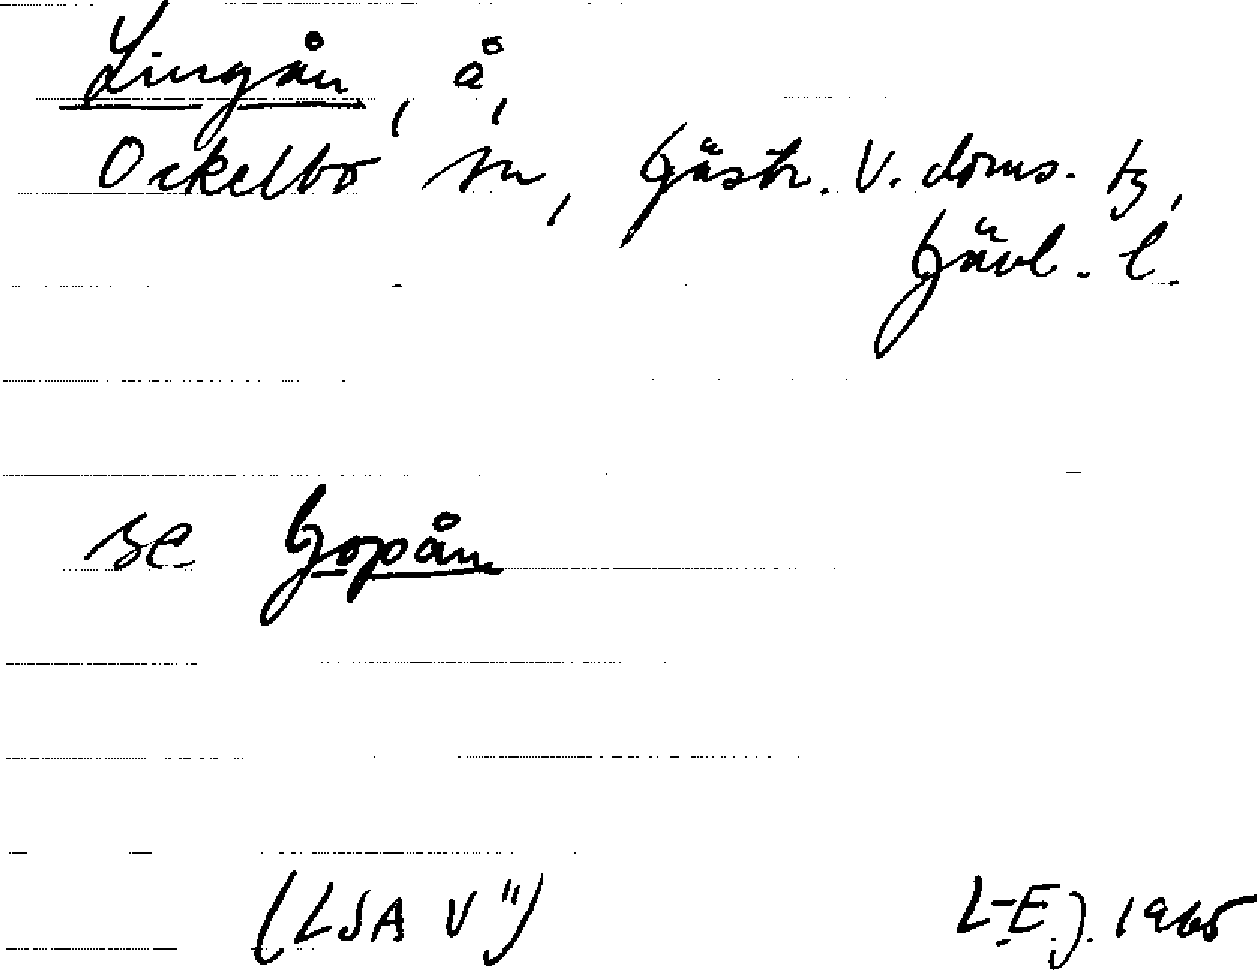 Lingån, å,
Ockelbo sn, Gästr. V. doms. tg,
Gävl. l.
se Gopån
(LSA V")
L-EJ. 1965